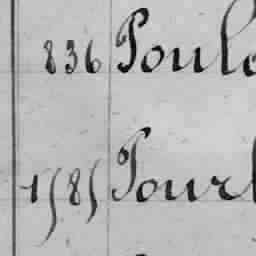 836 Poulo
1585 Pourl